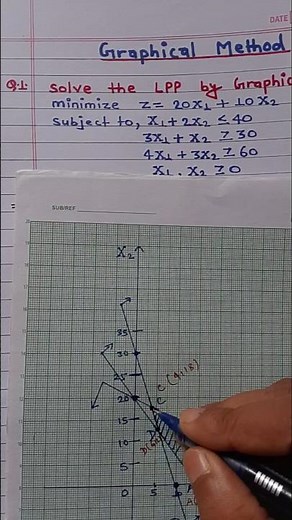 DATE
Graphical Method
Q.1. Solve the LPP by Graphic
minimize Z = 20x₁ + 10x₂
Subject to, x₁ + 2x₂ ≤ 40
3x₁ + x₂ ≥ 30
4x₁ + 3x₂ ≥ 60
x₁, x₂ ≥ 0
SUB/REF.
X₂
35
30
25
20
15
10
5
0 5 10
C (4,18)
C
D